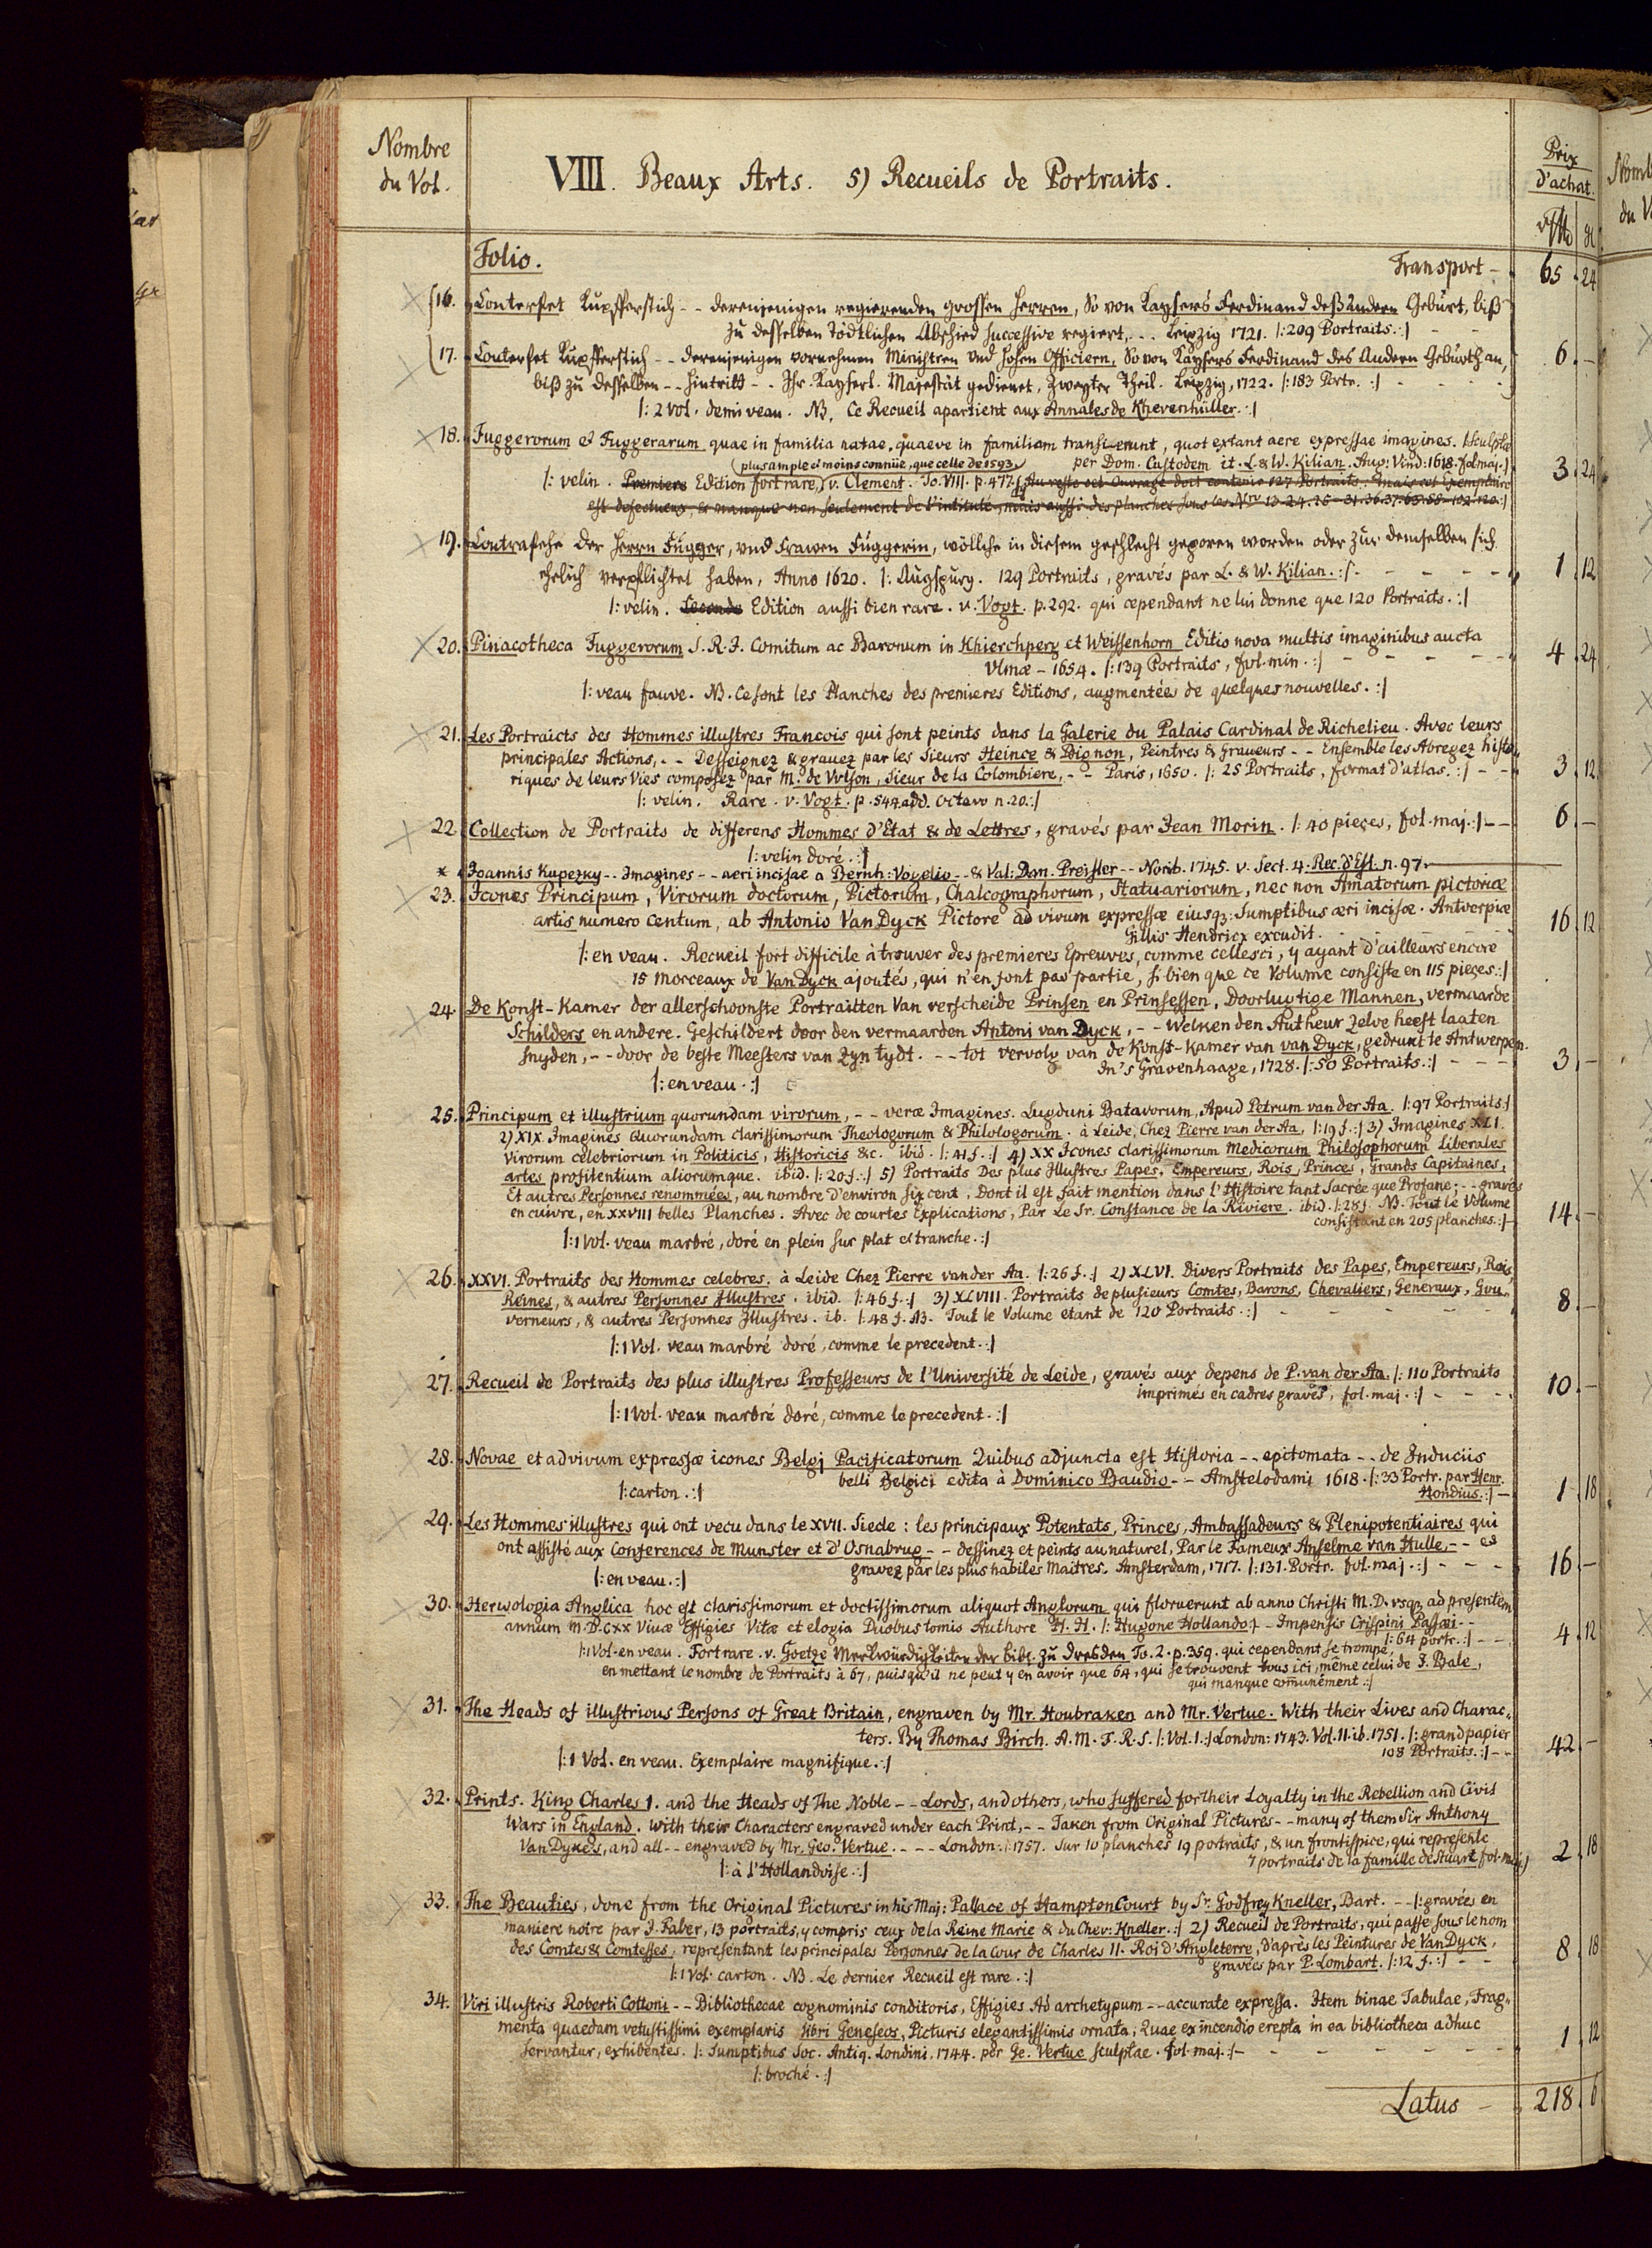 Nombre
du Vol.
VIII. Beaux Arts. 5) Recueils de Portraits.
Prix
d'achat.
Folio.
Transport - 65 . 24
16. Conterfet Kupfferstich - - derenjenigen regierenden grossen Herren, So von Kaysers Ferdinand deß Andern Geburt, biß
zu desselben tödtlichen Abschied successive regiert, - - Leipzig 1721. |: 209 Portraits. :|
17. Conterfet Kupfferstich - - derenjenigen vornehmen Ministren und hohen Officiern, So von Kaysers Ferdinand des Andern Geburth an, 6 . -
biß zu desselben - - hintritt - - Ihr. Kayserl. Majestät gedienet, Zweyter Theil. Leipzig, 1722. |: 183 Portr. :|
|: 2 Vol. demi veau. NB. Ce Recueil apartient aux Annales de Khevenhüller. :|
18. Fuggerorum et Fuggerarum quae in familia natae, quaeve in familiam transierunt, quot extant aere expressae imagines. |: sculptae
per Dom. Custodem it. L. & W. Kilian. Aug: Vind: 1618. fol maj. :| 3 . 24
(plus ample et moins connüe, que celle de 1593.)
|: velin. Premiere Edition fort rare, v. Clement. To. VIII. p. 477. Au reste cet Ouvrage doit contenir 127 Portraits, mais cet Exemplaire
est defectueux, & manque non seulement de l'intitulé, mais aussi des planches sous les Nro 12. 24. 25. 31. 36. 37. 63. 88. 102. 120. :|
19. Contrafehe der Herrn Fugger, und Frawen Fuggerin, wöllche in diesem geschlecht geporen worden oder zur demselben sich
ehrlich verpflichtet haben, Anno 1620. |: Augspurg. 129 Portraits, gravés par L. & W. Kilian. :| - 1 . 12
|: velin. Seconde Edition aussi bien rare. v. Vogt. p. 292. qui cependant ne lui donne que 120 Portraits. :|
20. Pinacotheca Fuggerorum S. R. J. Comitum ac Baronum in Khierchperg et Weissenhorn Editio nova multis imaginibus aucta
Ulmæ - 1654. |: 139 Portraits, fol. min. :| - 4 . 24
|: veau fauve. NB. Ce sont les Planches des premieres Editions, augmentées de quelques nouvelles. :|
21. Les Portraicts des Hommes illustres Francois qui sont peints dans la Galerie du Palais Cardinal de Richelieu. Avec leurs
principales Actions, - - Desseignez & grauez par les Sieurs Heince & Bignon, Peintres & Graueurs - - Ensemble les Abregez histo-
riques de leurs Vies composez par M. de Vulson, Sieur de la Colombiere, - - Paris, 1650. |: 25 Portraits, format d'atlas. :| - - 3 . 12
|: velin. Rare. v. Vogt. p. 544. add. Octavo n. 20. :|
22. Collection de Portraits de differens Hommes d'Etat & de Lettres, gravés par Jean Morin. |: 40 pieces, fol. maj. :| - - 6 . -
|: velin doré. :|
* Joannis Kupezky - - Imagines - - aeri incisae a Bernh: Vogelio - - & Val: Dan. Preisler - - Norib. 1745. v. Sect. 4. Rec. d'Est. n. 97.
23. Icones Principum, Virorum doctorum, Pictorum, Chalcographorum, Statuariorum, nec non Amatorum pictoriæ
artis numero centum, ab Antonio Van Dyck Pictore ad vivum expressæ eiusq3: Sumptibus æri incisæ. Antverpiæ 16 . 12
Gillis Hendricx excudit.
|: en veau. Recueil fort difficile à trouver des premieres Epreuves, comme celles ci, y ayant d'ailleurs encore
15 morceaux de Van Dyck ajoutés, qui n'en font pas partie, si bien que ce Volume consiste en 115 pieces. :|
24. De Konst-Kamer der allerschoonste Portraitten Van verscheide Prinsen en Prinsessen, Doorlugtige Mannen, vermaarde
Schilders en andere. Geschildert door den vermaarden Antoni van Dyck, - - Welken den Autheur zelve heeft laaten
snyden, - - door de beste Meesters van Zyn tydt. - - tot vervolg van de Konst-Kamer van van Dyck, gedrukt te Antwerpen.
In's Gravenhaage, 1728. |: 50 Portraits. :| - - - 3 . -
|: en veau. :|
25. Principum et illustrium quorundam virorum, - - veræ Imagines. Lugduni Batavorum, Apud Petrum van der Aa. |: 97 Portraits. :|
2) XIX. Imagines Quorundam clarissimorum Theologorum & Philologorum. à Leide, Chez Pierre van der Aa, |: 19 f. :| 3) Imagines XLI.
Virorum celebriorum in Politicis, Historicis &c. ibid. |: 41 f. :| 4) XX Icones clarissimorum Medicorum Philosophorum Liberales
artes profitentium aliorumque. ibid. |: 20 f. :| 5) Portraits Des plus Illustres Papes, Empereurs, Rois, Princes, Grands Capitaines,
Et autres Personnes renommées, au nombre d'environ six cent, Dont il est fait mention dans l'Histoire tant Sacrée que Profane; - - gravés
en cuivre, en XXVIII belles Planches. Avec de courtes Explications, Par Le Sr. Constance de la Riviere. ibid. |: 28 f. NB. Tout le Volume
consistant en 205 planches. :| 14 . -
|: 1 Vol. veau marbré, doré en plein sur plat et tranche. :|
26. XXVI. Portraits des Hommes celebres. à Leide Chez Pierre vander Aa. |: 26 f. :| 2) XLVI. Divers Portraits des Papes, Empereurs, Rois,
Reines, & autres Personnes Illustres. ibid. |: 46 f. :| 3) XLVIII. Portraits de plusieurs Comtes, Barons, Chevaliers, Generaux, Gou-
verneurs, & autres Personnes Illustres. ib. |: 48 f. NB. Tout le Volume etant de 120 Portraits. :| 8 . -
|: 1 Vol. veau marbré doré, comme le precedent. :|
27. Recueil de Portraits des plus illustres Professeurs de l'Université de Leide, gravés aux depens de P. van der Aa. |: 110 Portraits
imprimés en cadres gravés, fol. maj. :| - - - 10 . -
|: 1 Vol. veau marbré doré, comme le precedent. :|
28. Novae et ad vivum expressæ icones Belgj Pacificatorum Quibus adjuncta est Historia - - epitomata - - de Induciis
belli Belgici edita à Dominico Baudio - - Amstelodami 1618. |: 33 Portr. par Henr.
|: carton. :| Hondius. :| - 1 . 18
29. Les Hommes illustres qui ont vecu dans le XVII. Siecle: les principaux Potentats, Princes, Ambassadeurs & Plenipotentiaires qui
ont assisté aux Conferences de Munster et d'Osnabrug - - dessinez et peints au naturel, Par le Fameux Anselme van Hulle, - - et
gravez par les plus habiles Maitres. Amsterdam, 1717. |: 131. Portr. fol. maj. :| - - - 16 . -
|: en veau. :|
30. Herwologia Anglica hoc est clarissimorum et doctissimorum aliquot Anglorum qui floruerunt ab anno Christi M.D. vsq3 ad presentem
annum M.D.CXX Viuæ Effigies Vitæ et elogia Duobus tomis Authore H. H. |: Hugone Hollando :| - Impensis Crispini Passæi - -
|: 64 portr. :| - - - 4 . 12
|: 1 Vol. en veau. Fort rare. v. Goetze Merkwürdigkeiten der bibl. zu Dresden To. 2. p. 259. qui cependant se trompe,
en mettant le nombre de Portraits à 67, puisqu'il ne peut y en avoir que 64, qui se trouvent tous ici, même celui de J. Bale,
qui manque comunément. :|
31. The Heads of illustrious Persons of Great Britain, engraven by Mr. Houbraken and Mr. Vertue. With their Lives and Charac-
ters. By Thomas Birch. A. M. F. R. S. |: Vol. I. :| London: 1743. Vol. II. ib. 1751. |: grand papier
108 Portraits. :| - - 42 . -
|: 1 Vol. en veau. Exemplaire magnifique. :|
32. Prints. King Charles I. and the Heads of The Noble - - Lords, and others, who suffered for their Loyalty in the Rebellion and Civil
Wars in England. With their Characters engraved under each Print, - - Taken from Original Pictures - - many of them Sir Anthony
Van Dyke's, and all - - engraved by Mr. Geo. Vertue. - - - - London. |: 1757. Sur 10 planches 19 portraits, & un frontispice, qui represente
7 portraits de la famille de Stuart fol. maj. :| 2 . 18
|: à l'Hollandoise. :|
33. The Beauties, done from the Original Pictures in his Maj: Pallace of Hampton Court by Sr. Godfrey Kneller, Bart. - - |: gravées en
maniere noire par J. Faber, 13 portraits, y compris ceux de la Reine Marie & du Chev: Kneller. :| 2) Recueil de Portraits, qui passe sous le nom
des Comtes & Comtesses, representant les principales Personnes de la Cour de Charles II. Roi d'Angleterre, d'après les Peintures de Van Dyck,
gravées par P. Lombart. |: 12 f. :| - - 8 . 18
|: 1 Vol. carton. NB. Le dernier Recueil est rare. :|
34. Viri illustris Roberti Cottoni - - Bibliothecae cognominis conditoris, Effigies Ad archetypum - - accurate expressa. Item binae Tabulae, Frag-
menta quaedam vetustissimi exemplaris libri Geneseos, Picturis elegantissimis ornata; Quae ex incendio erepta in ea bibliotheca adhuc
servantur, exhibentes. |: Sumptibus Soc. Antiq. Londini. 1744. per Ge. Vertue sculptae. fol. maj. :| - 1 . 12
|: broché. :|
Latus - 218 . 6